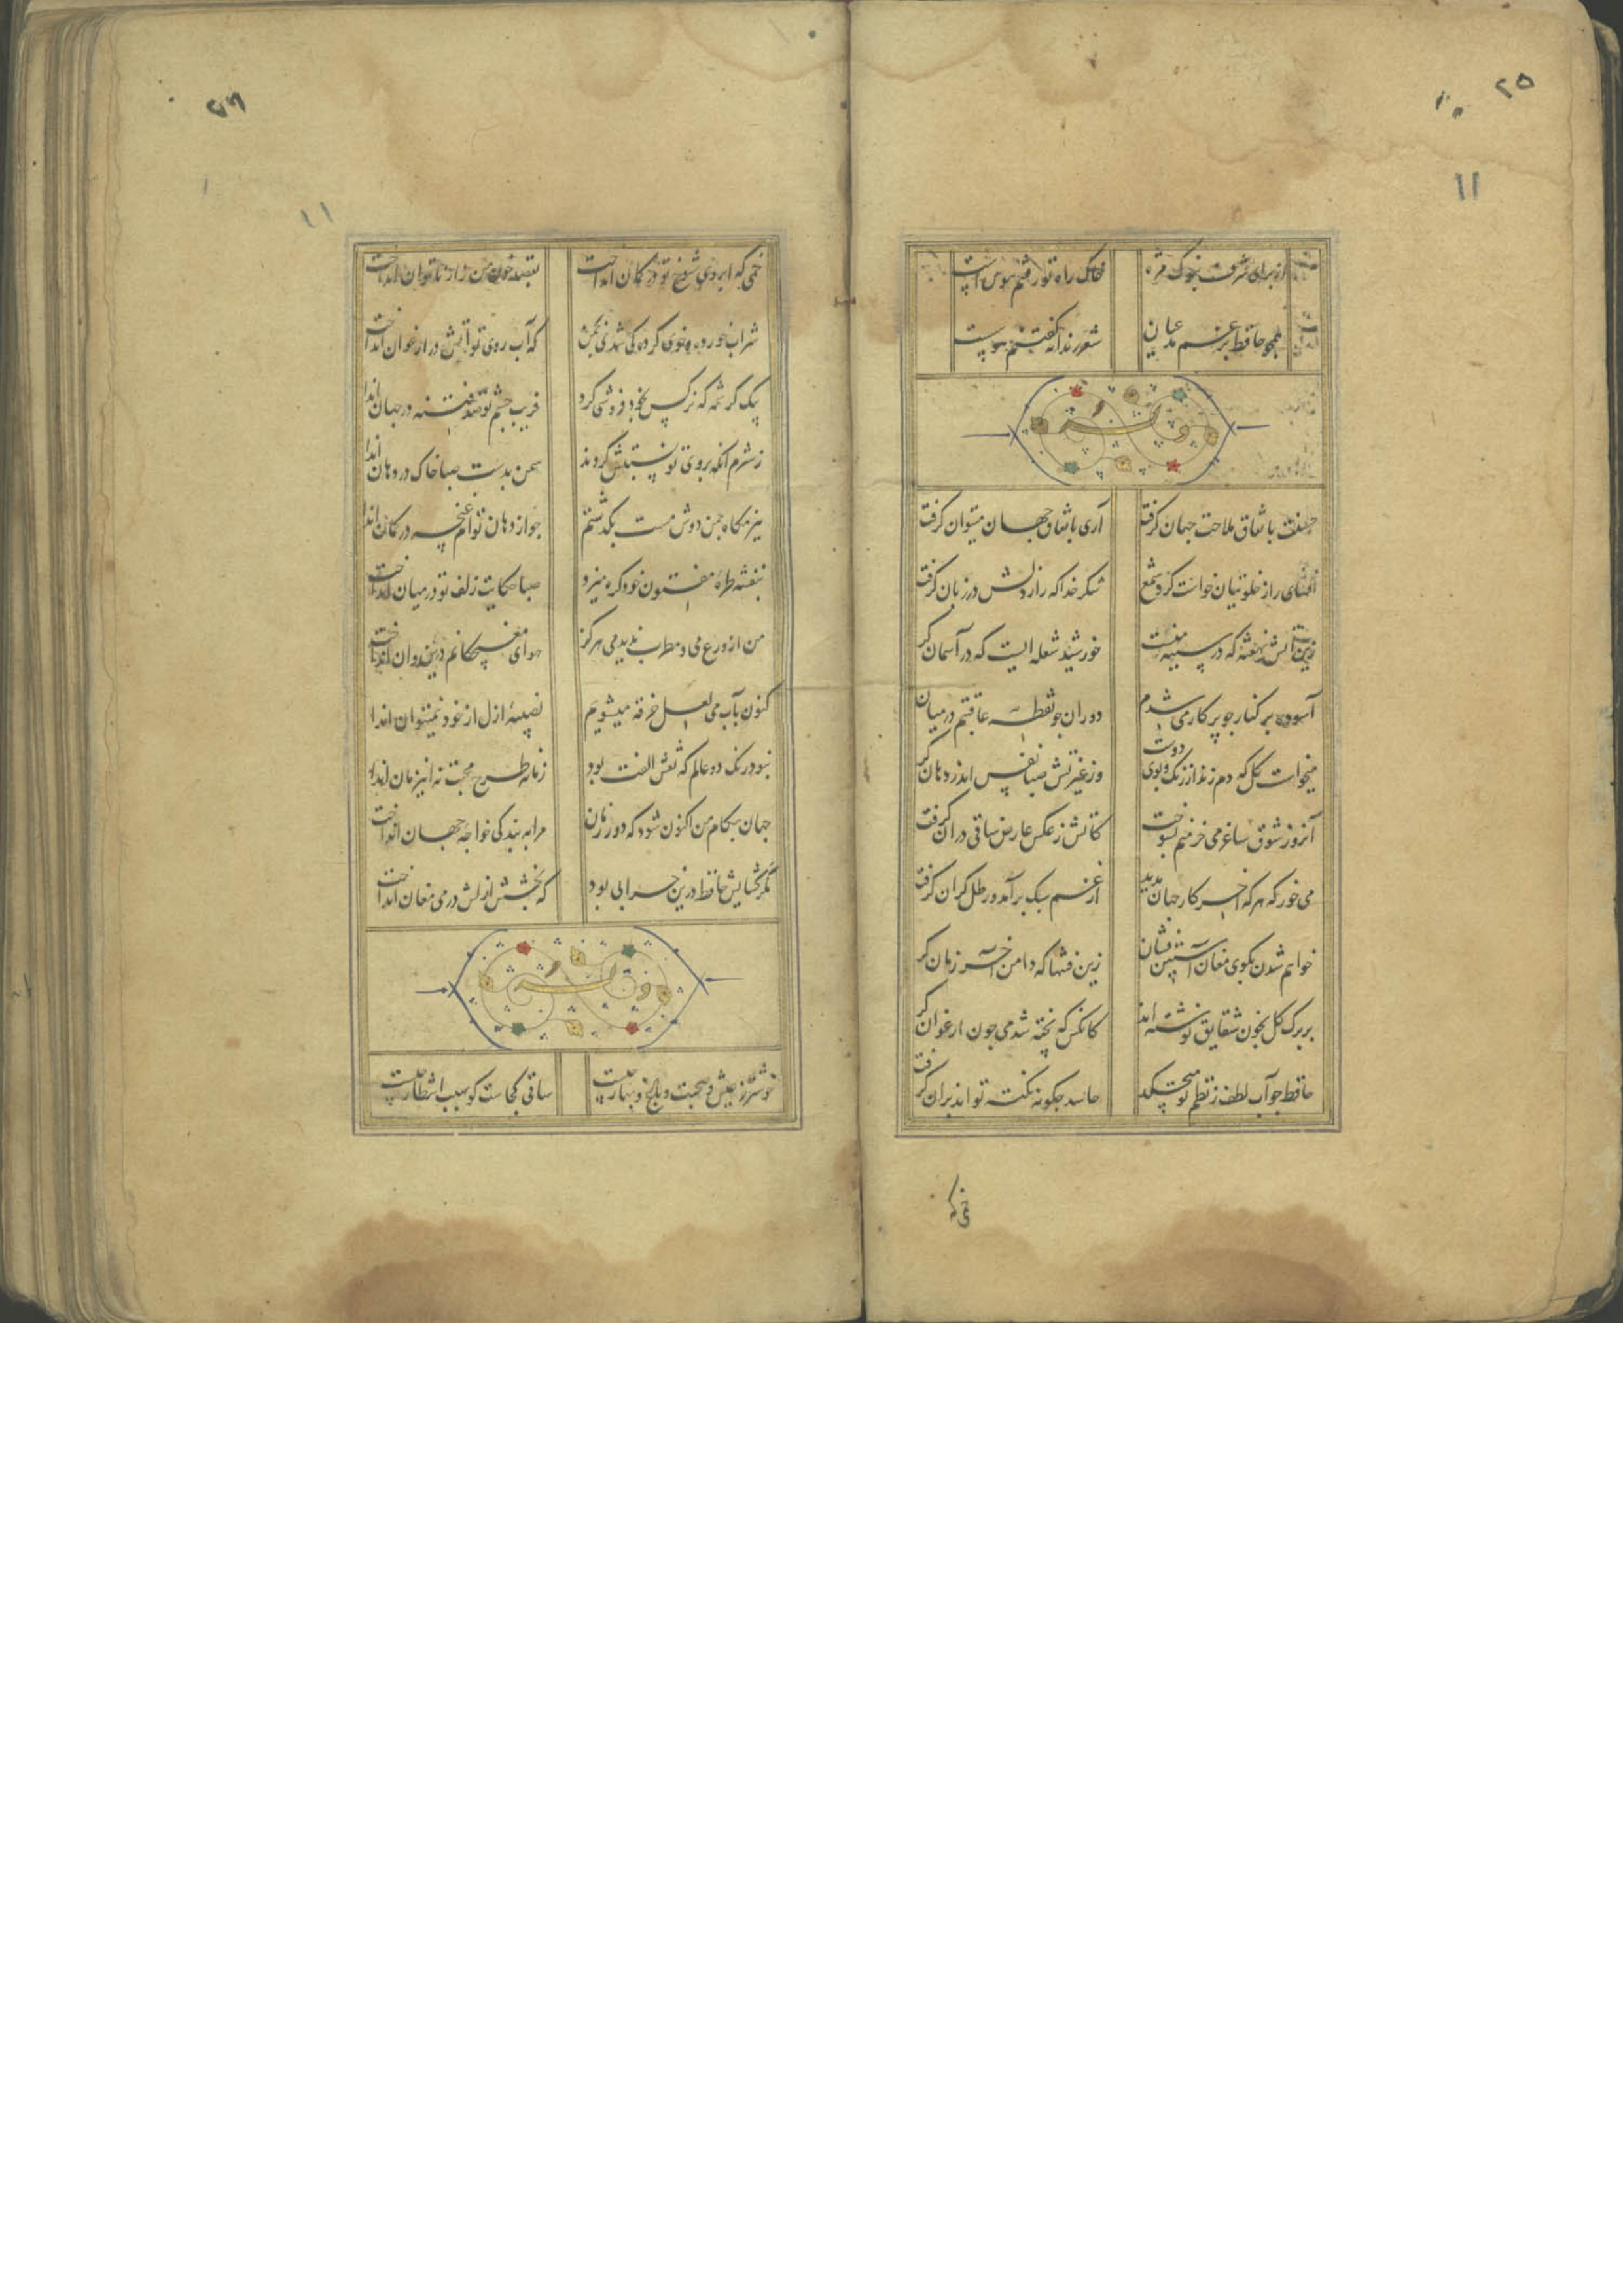 ٢٥
١١
از برای شرف بنوک مژه
خاک راه تو رفتنم هوس است
همچو حافظ برغم مدعیان
شعر رندانه گفتنم هوست
وله
حسنت باتفاق ملاحت جهان گرفت
آری باتفاق جهان میتوان گرفت
افشای راز خلوتیان خواست کرد شمع
شکر خدا که راز دلش در زبان گرفت
زین آتش نهفته که در سینه منست
خورشید شعله ایست که در آسمان گر
آسوده بر کنار جو پرکار می شدم
دوران جو نقطه عاقبتم در میان گر
میخواست گل که دم زند از رنگ و بوی دوست
وز غیرتش صبا نفس اندر دهان گر
آنروز شوق ساغر می خرمنم بسوخت
کاتش ز عکس عارض ساقی در ان گرفت
می خور که هر که آخر کار جهان بدید
از غم سبک برآمد و رطل گران گرفت
خواهم شدن بکوی مغان آستین فشان
زین فتنها که دامن آخر زمان گر
بر برگ گل بخون شقایق نوشته اند
کانکس که پخته شد می جون ارغوان گر
حافظ جو آب لطف ز نظم تو میچکد
حاسد جگونه نکته تواند بران گرفت
خمی که
١١
خمی که ابروی شوخ تو در کمان انداخت
بقصد خون من زار ناتوان انداخت
شراب خورده و خوی کرده کی شدی بچمن
که آب روی تو آتش در ارغوان انداخت
بیک کرشمه که نرکس بخود فروشی کرد
فریب جشم تو صد فتنه در جهان اندا
ز شرم آنکه بروی تو نسبتش کردند
سمن بدست صبا خاک در دهان اندا
ببزمگاه جمن دوش مست بگذشتم
جو از دهان توام غنچه در گمان اندا
بنفشه طره مفتون خود گره میزد
صبا حکایت زلف تو در میان انداخت
من از ورع می و مطرب ندیدمی هرگز
هوای مغبچگانم در این و ان انداخت
کنون بآب می لعل خرقه میشویم
نصیبه ازل از خود نمیتوان اندا
نبود رنک دو عالم که نقش الفت بود
زمانه طرح محبت نه اینزمان اندا
جهان بکام من اکنون شود که دور زمان
مرا به بندگی خواجه جهان انداخت
مگر گشایش حافظ درین خرابی بود
که بخشش ازلش در می مغان انداخت
وله
خوشتر ز عیش و صحبت و باغ و بهار چیست
ساقی کجاست کو سبب انتظار چیست